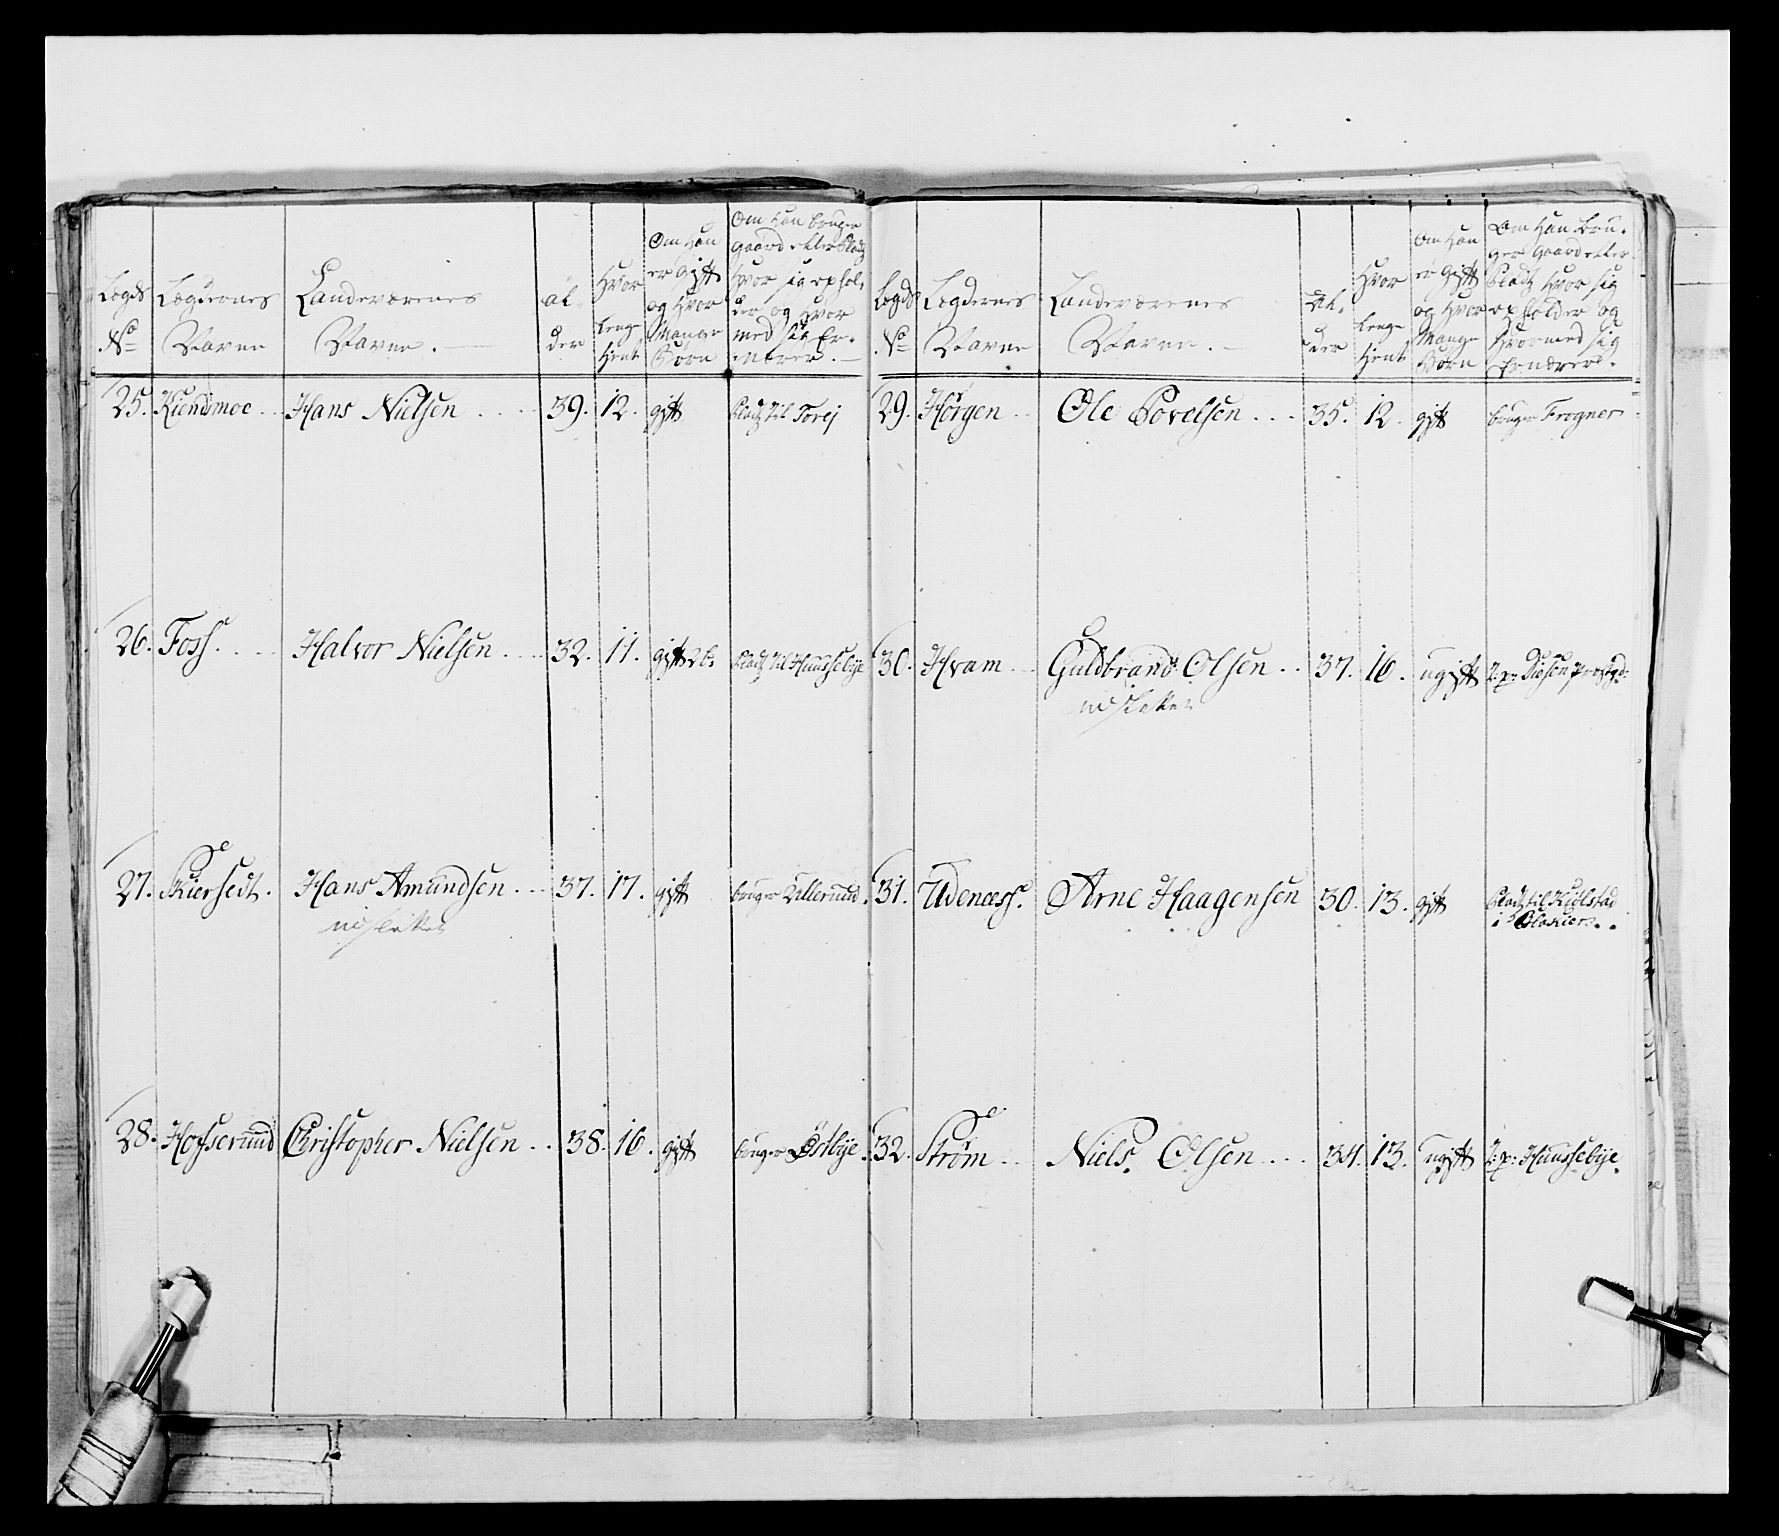 Legds No
Legdernes Navne
Landeværenes Navne.
Al- der
Hvor lenge tient
Om Han er gift og Hvor Mange Børn
Om Han bruger gaard eller Pladz Hvor sig ophol- der og Hvor med sig Er- nærer.
25. Kiendmoe Hans Nielsen 39. 12. gift Pladz til Torej
26. Foss. Halvor Nielsen 32. 11. gift 2 b. Pladz til Hunssebye
27. Skiersedt. Hans Amundsen 37. 17. gift bruger Ullerund.
udsletter
28. Hofserund Christopher Nielsen 38. 16. gift bruger Østbye.
Legds No
Legdernes Navne
Landeværenes Navne.
Al- der
Hvor lenge tient
Om Han er gift og Hvor Mange Børn
Om Han Bru- ger Gaard eller Pladz Hvor sig opholder og Hvormed sig Ernærer.
29. Hørgen Ole Povelsen 35. 12. gift bruger Frogner
30. Hvam Guldbrand Olsen 37. 16. ugift Præstgd:
udsletter
31. Udenæss. Arne Haagensen 30. 13. gift Pladz til Kiølstad
i Blakier.
32. Strøm Niels Olsen 34. 13. ugift Hunssebye.